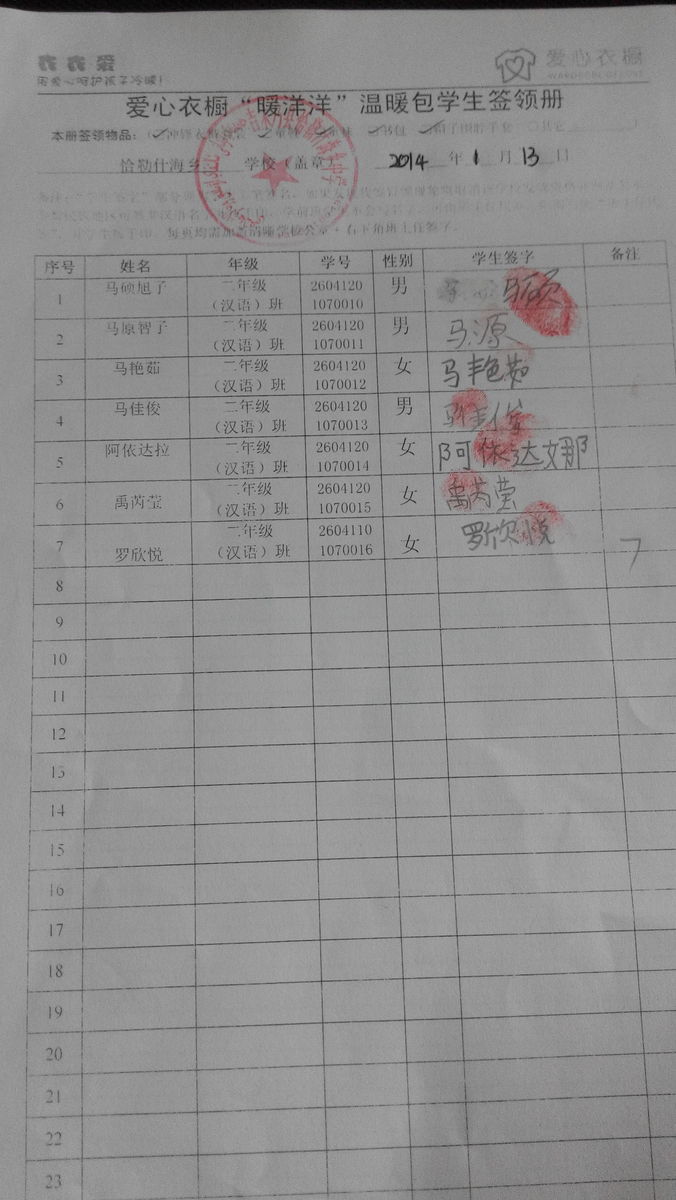 衣衣爱
用爱心呵护孩子冷暖!
爱心衣橱
WARDROBE OF LOVE
爱心衣橱“暖洋洋”温暖包学生签领册
本册签领物品:
书包
其它
恰勒什海乡 学校(盖章) 2014 年 1 月 13 日
每页均需加盖清晰学校公章+右下角班主任签字.
序号 姓名 年级 学号 性别 学生签字 备注
1 马硕旭子 二年级(汉语)班 26041201070010 男 马硕
2 马原智子 二年级(汉语)班 26041201070011 男 马源
3 马艳茹 二年级(汉语)班 26041201070012 女 马艳茹
4 马佳俊 二年级(汉语)班 26041201070013 男 马佳俊
5 阿依达拉 二年级(汉语)班 26041201070014 女 阿依达娜
6 禹芮莹 二年级(汉语)班 26041201070015 女 禹芮莹
7 罗欣悦 二年级(汉语)班 26041101070016 女 罗欣悦 7
8
9
10
11
12
13
14
15
16
17
18
19
20
21
22
23